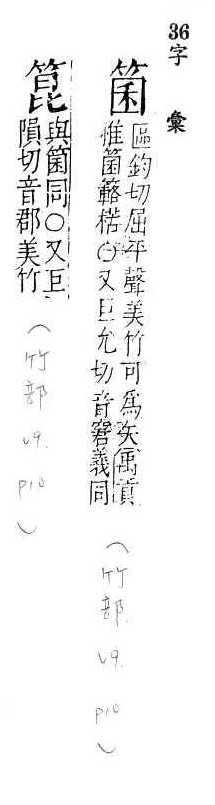 36字彙
箘 區鈞切屈平聲美竹可爲矢禹貢
惟箘簵楛○又巨允切音窘義同
(竹部 v9. p10)
箟 與箘同○又巨
隕切音郡美竹
(竹部 v9. p10)